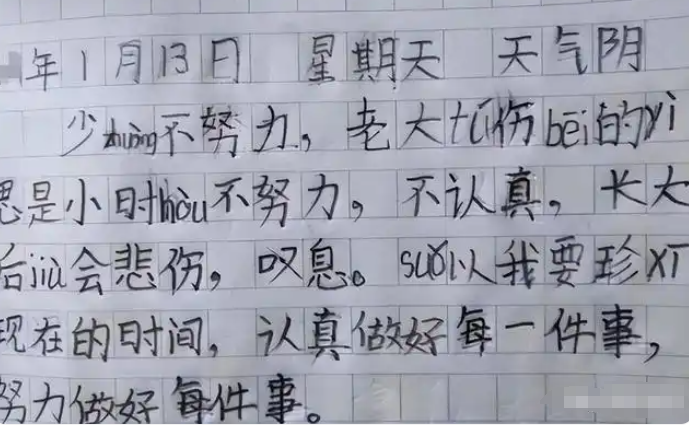 年1月13日 星期天 天气阴
少zhuàng不努力，老大tú伤bēi的yì
思是小时hòu不努力。不认真。长大
后jiù会悲伤，叹息。suǒ以我要珍xī
现在的时间，认真做好每一件事，
努力做好每件事。